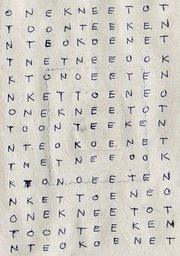 O N E K N E E T O T
T O O N T E E K E N
N T E O K O E N E T
T N E T N E E O O K
K T O N O E E T E N
N K E T T O E N E O
O N E K N E E T O T
T O O N T E E K E N
N T E O K O E N E T
T N E T N E E O T K
K T O N O E E T E N
N K E T T O E N E O
O N E K N E E T O T
T O O N T E E K E N
N T E O K O E N E T